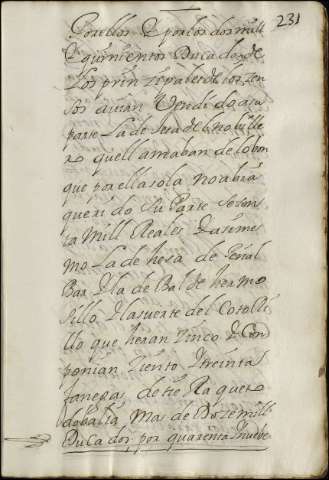 231
por ellos E por los dos mill
E quinientos Ducados de
los prinzepales de los zen
sos avian Vendido a su
parte La de
ro que llamaban de lobon
que por ella sola no abia
queri do Su Parte seten
ta Mill Reales E asimes
mo La de hesa de Peñal
Bar E la de Bal de hermo
sillo E la suerte del Cotorri
llo que heran zinco E Com
ponian ziento E treinta
fanegas de tie Ra que
balia Mas de Doze mill
Ducados por quarenta Inuebe